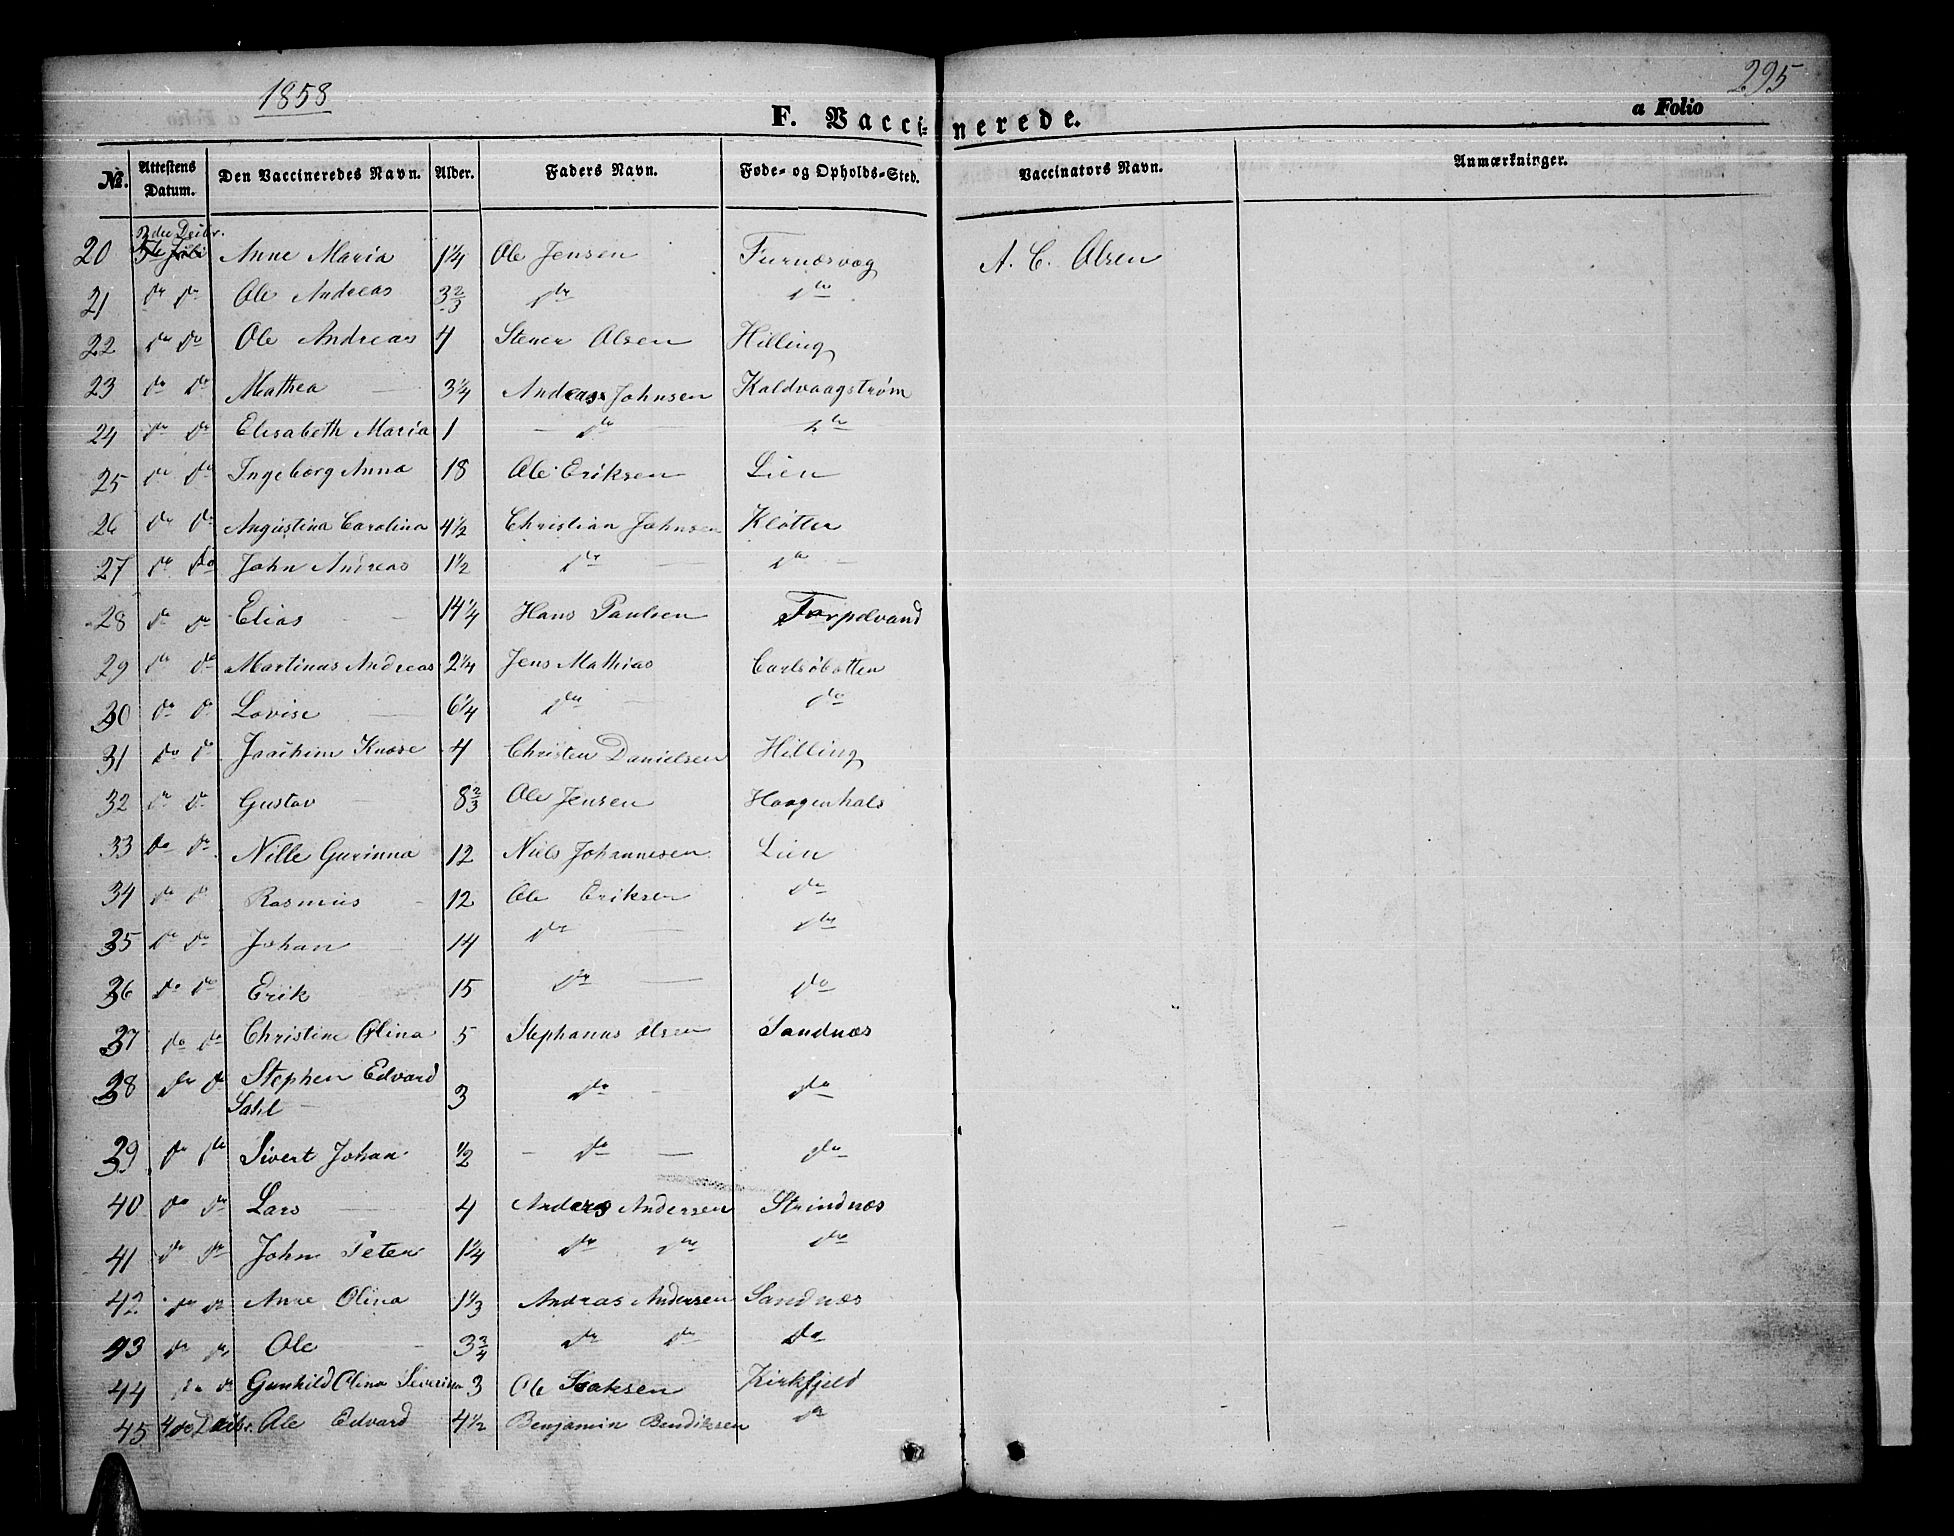 1858
295
F. Vaccinerede.
a Folio
No. Attestens Datum. Den Vaccineredes Navn. Alder. Faders Navn. Føde- og Opholds-Sted. Vaccinators Navn. Anmærkninger.
3die Decbr.
20 Anne Maria 1 1/4 Ole Jensen Furnæsvag A. C. Olsen
21 do do Ole Andreas 3 2/3 do do
22 do do Ole Andreas 4 Stener Olsen Hilling
23 do do Mathea 3 1/4 Andreas Johnsen Kaldvaagstrøm
24 do do Elisabeth Maria 1 do do
25 do do Ingeborg Anna 18 Ole Eriksen Lien
26 do do Augustina Carolina 4 1/2 Christian Johnsen Kløtten
27 do do John Andreas 1 1/2 do do
28 do do Elias 14 1/4 Hans Paulsen Torpelvand
29 do do Martinus Andreas 2 1/4 Jens Mathias Carlsøbotten
30 do do Lovise 6 1/4 do do
31 do do Joachim Knose 4 Christen Danielsen Hilling
32 do do Gustav 8 2/3 Ole Jensen Haagenhals
33 do do Nille Gurinna 12 Niels Johannesen Lien
34 do do Rasmus 12 Ole Eriksen do
35 do do Johan 14 do do
36 do do Erik 15 do do
37 do do Christine Olina 5 Stephanus Olsen Sandnæs
38 do do Stephen Edvard 3 do do
Sahl
39 do do Sivert Johan 1/2 do do
40 do do Lars 4 Anders Andersen Strindnæs
41 do do John Peter 1 1/4 do do do
42 do do Anne Olina 1 1/3 Andras Andersen Sandnæs
43 do do Ole 3 3/4 do do do
44 do do Gunhild Olina Severina 3 Ole Isaksen Kirkfjeld
45 4de Decbr. Ole Edvard 4 1/2 Benjamin Bendiksen do